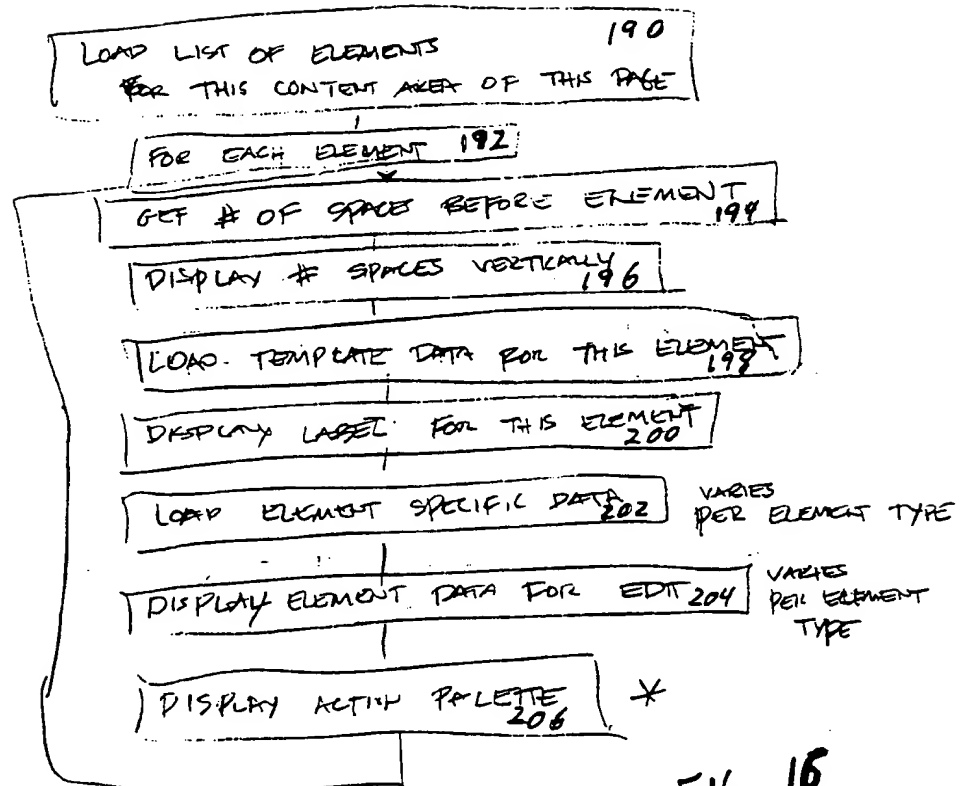 LOAD LIST OF ELEMENTS 190
FOR THIS CONTENT AREA OF THIS PAGE
FOR EACH ELEMENT 192
GET # OF SPACES BEFORE ELEMENT
194
DISPLAY # SPACES VERTICALLY
196
LOAD TEMPLATE DATA FOR THIS ELEMENT
198
DISPLAY LABEL FOR THIS ELEMENT
200
LOAD ELEMENT SPECIFIC DATA 202
VARIES
PER ELEMENT TYPE
DISPLAY ELEMENT DATA FOR EDIT 204
VARIES
PER ELEMENT
TYPE
DISPLAY ACTION PALETTE *
206
16